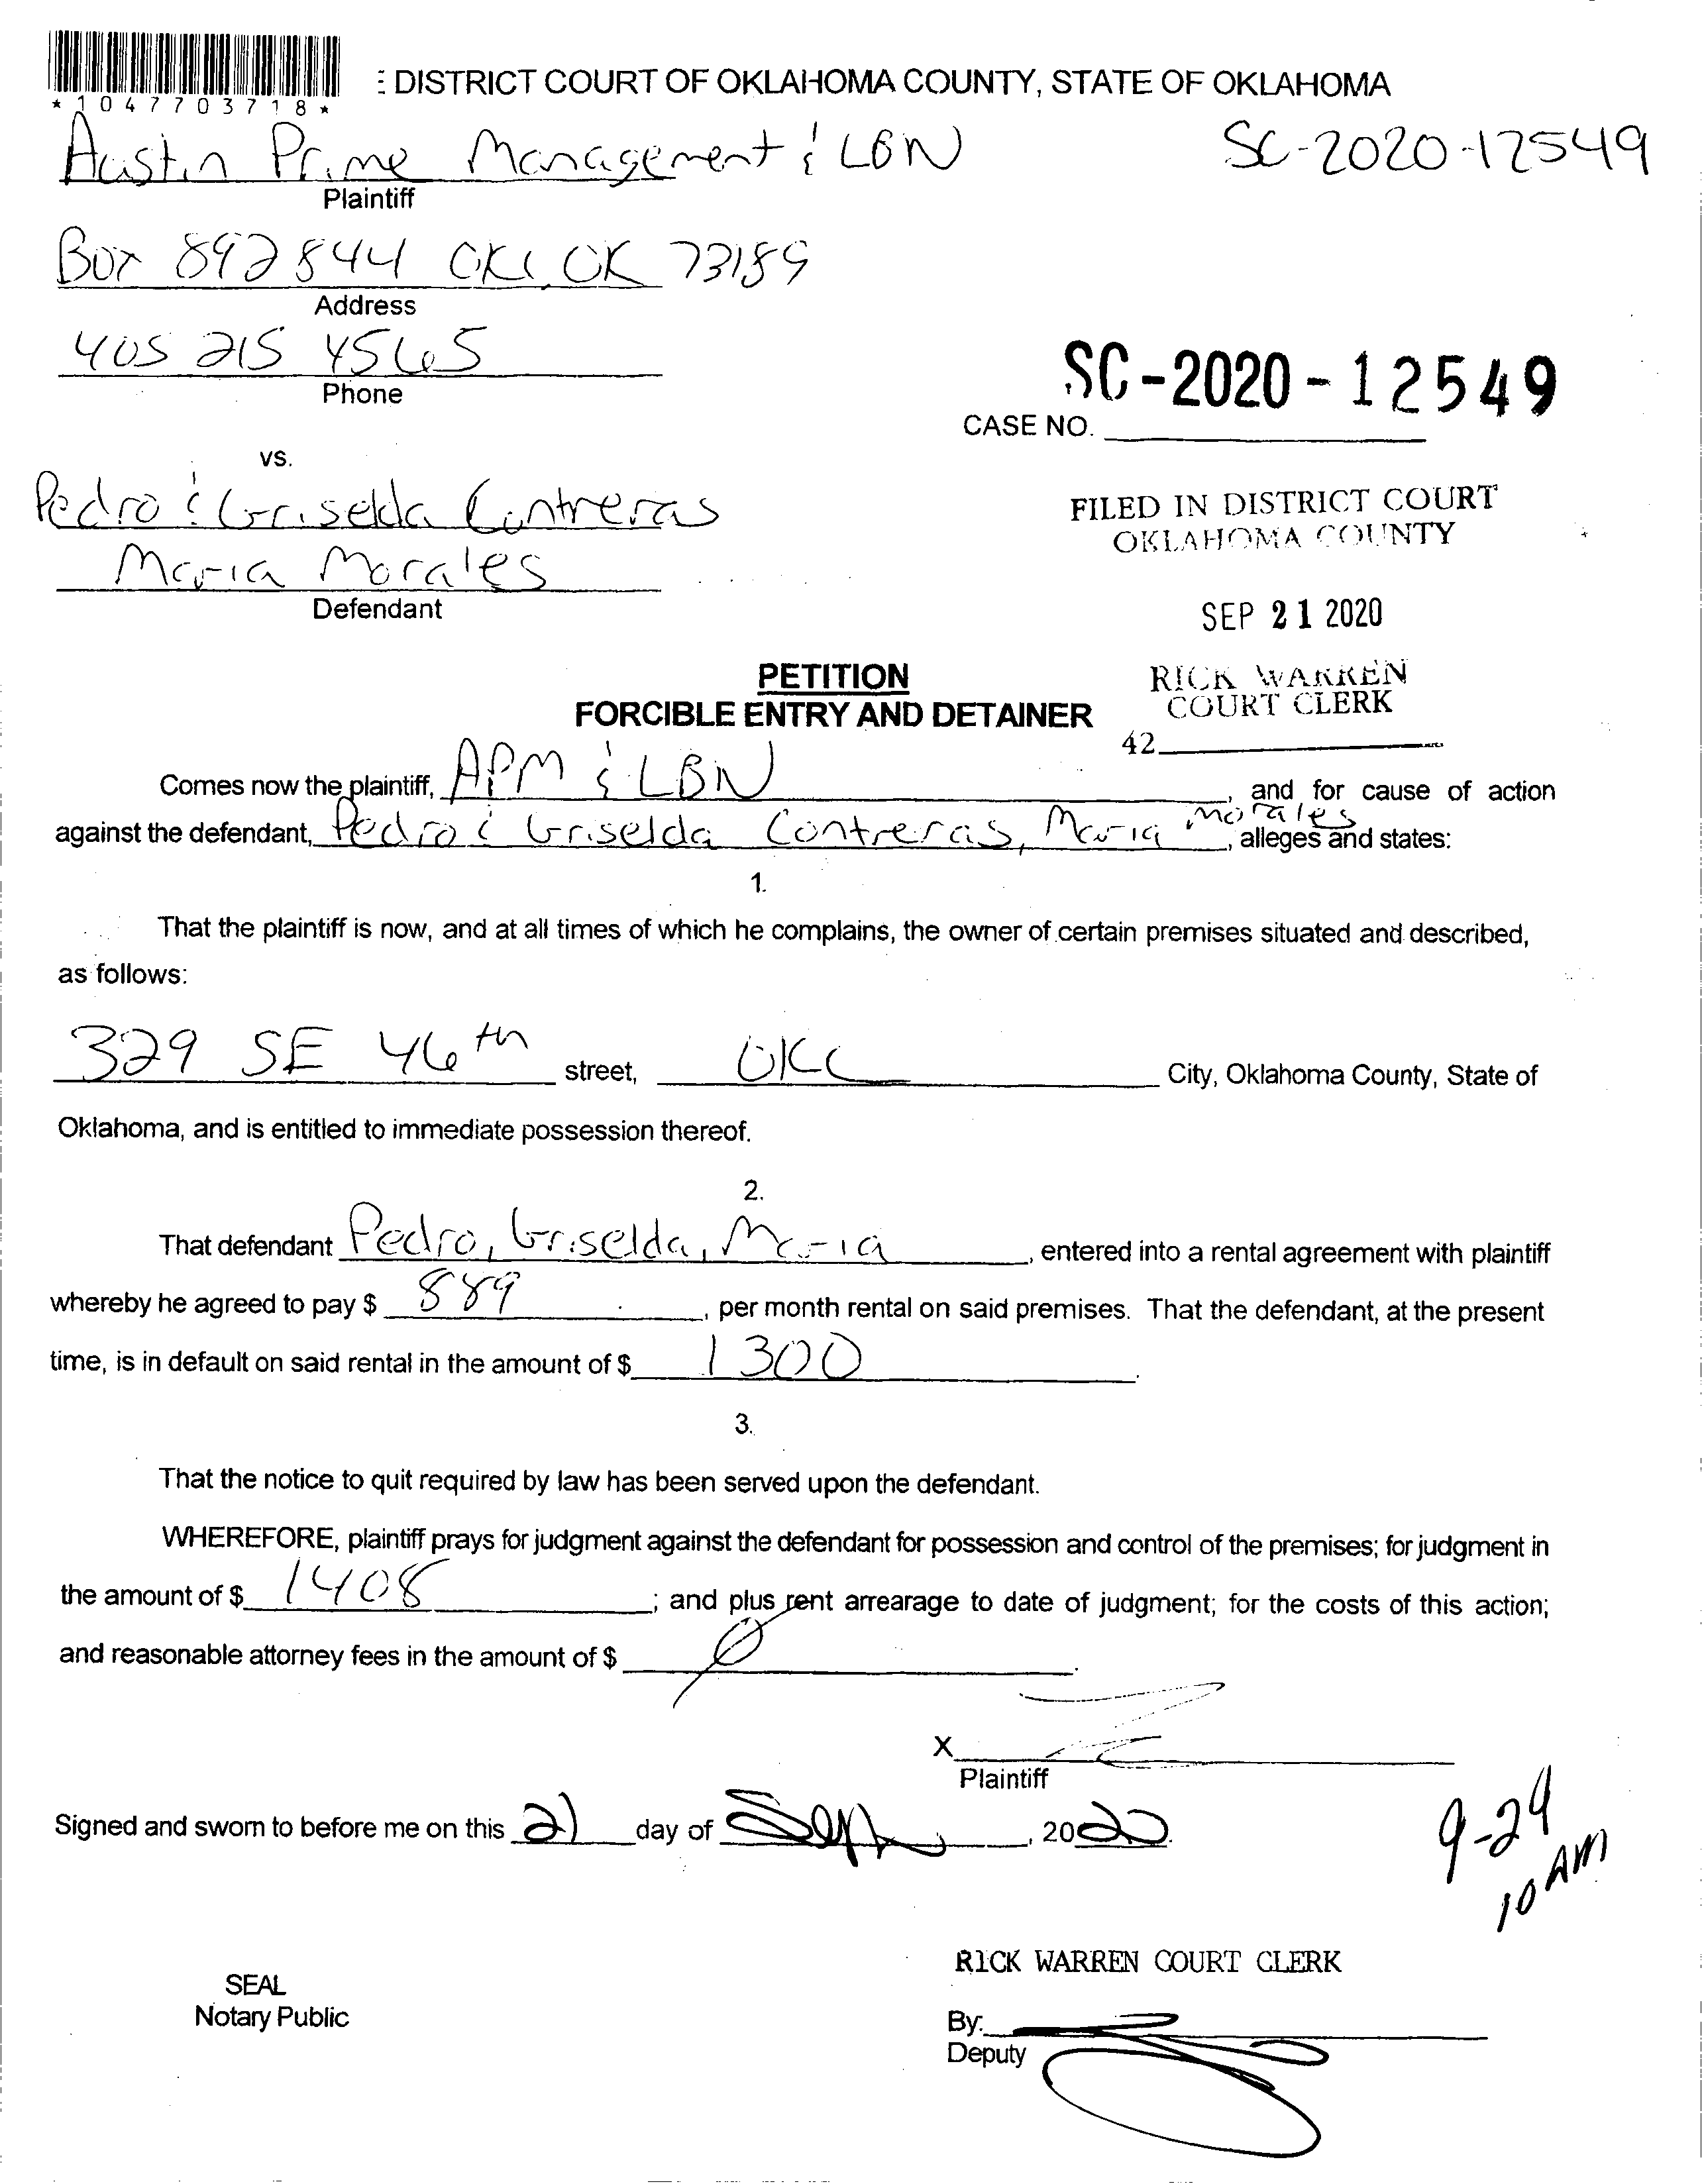 *1047703718*
E DISTRICT COURT OF OKLAHOMA COUNTY, STATE OF OKLAHOMA
Austin Prime Management & LBN
SC-2020-12549
Plaintiff
Box 892844 OKC, OK 73189
Address
405 215 4565
Phone
SC-2020-12549
CASE NO.
vs.
Pedro & Griselda Contreras
Maria Morales
Defendant
FILED IN DISTRICT COURT
OKLAHOMA COUNTY
SEP 21 2020
RICK WARREN
COURT CLERK
42
PETITION
FORCIBLE ENTRY AND DETAINER
Comes now the plaintiff, APM & LBN, and for cause of action
against the defendant, Pedro & Griselda Contreras, Maria Morales, alleges and states:
1.
That the plaintiff is now, and at all times of which he complains, the owner of certain premises situated and described,
as follows:
329 SE 46th street, OKC City, Oklahoma County, State of
Oklahoma, and is entitled to immediate possession thereof.
2.
That defendant Pedro, Griselda, Maria, entered into a rental agreement with plaintiff
whereby he agreed to pay $ 889, per month rental on said premises. That the defendant, at the present
time, is in default on said rental in the amount of $ 1300.
3.
That the notice to quit required by law has been served upon the defendant.
WHEREFORE, plaintiff prays for judgment against the defendant for possession and control of the premises; for judgment in
the amount of $ 1408; and plus rent arrearage to date of judgment; for the costs of this action;
and reasonable attorney fees in the amount of $ 0.
X
Plaintiff
Signed and sworn to before me on this 21 day of Sept, 2020.
9-24
10 AM
RICK WARREN COURT CLERK
SEAL
Notary Public
By:
Deputy